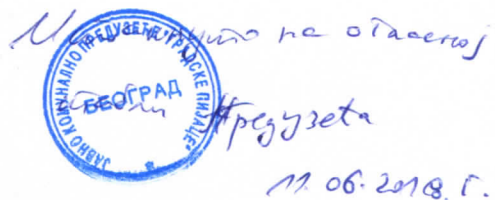 Истакнуто на огласној
табли Предузећа
11.06.2018. г.
ЈАВНО КОМУНАЛНО ПРЕДУЗЕЋЕ "ГРАДСКЕ ПИЈАЦЕ"
БЕОГРАД